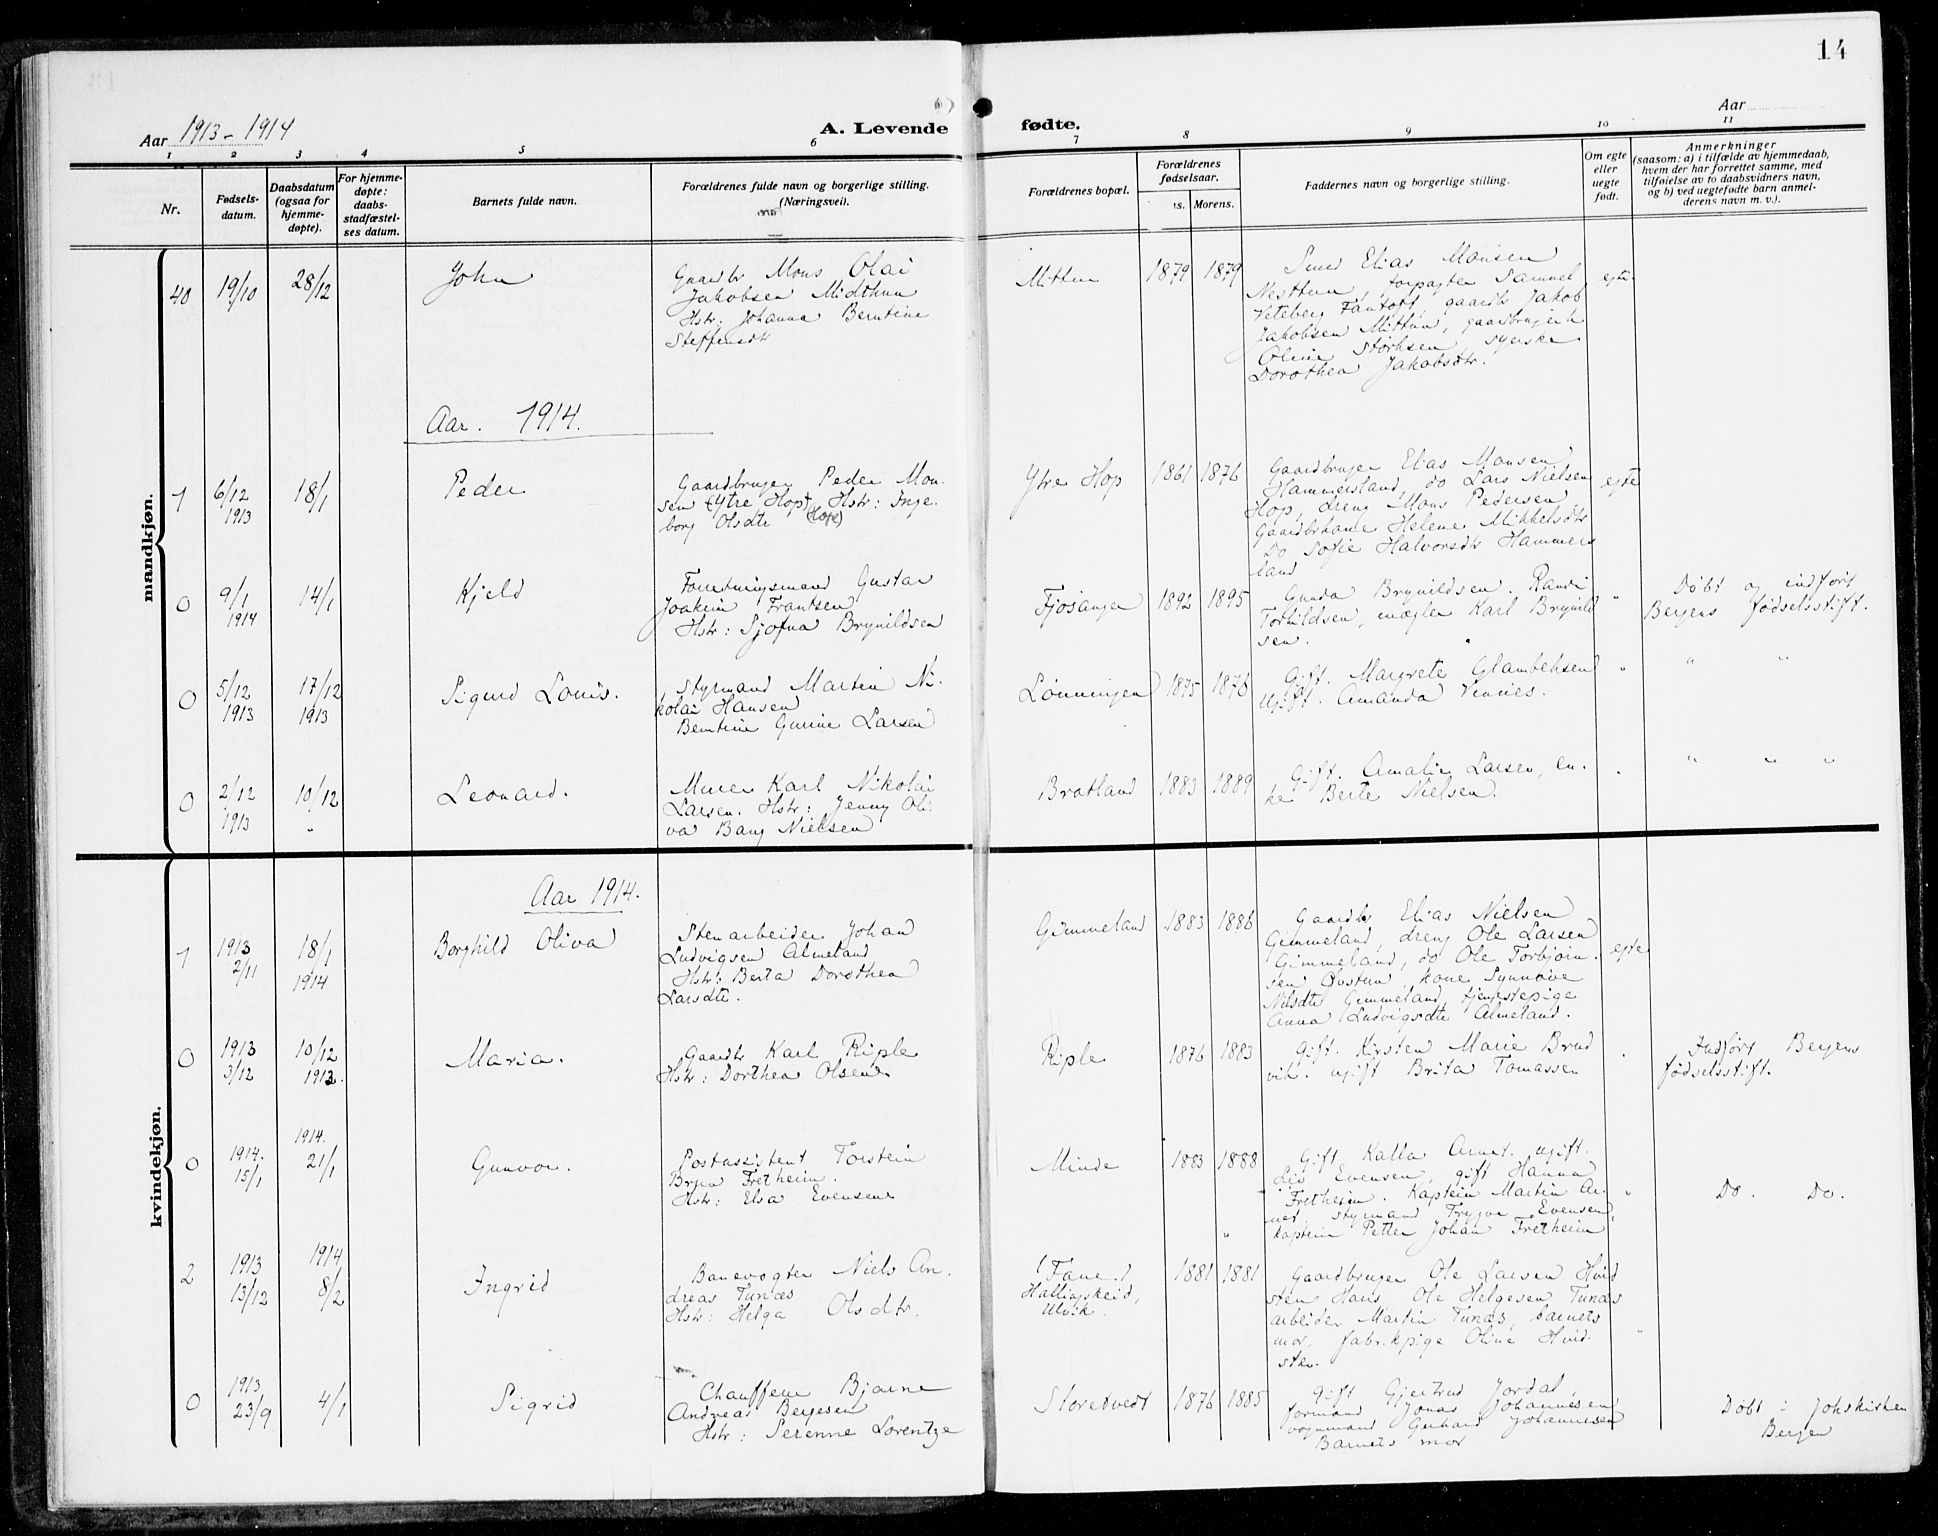 14
Aar 1913-1914
A. Levende fødte.
Aar
1 2 3 4 5 6 7 8 9 10 11
Nr.
Fødsels-
datum.
Daabsdatum
(ogsaa for
hjemme-
døpte).
For hjemme-
døpte:
daabs-
stadfæstel-
ses datum.
Barnets fulde navn.
Forældrenes fulde navn og borgerlige stilling.
(Næringsvei).
Forældrenes bopæl.
Forældrenes
fødselsaar.
s. Morens.
Faddernes navn og borgerlige stilling.
Om egte
eller
uegte
født.
Anmerkninger
(saasom: a) i tilfælde av hjemmedaab,
hvem der har forrettet samme, med
tilføielse av to daabsvidners navn,
og b) ved uegtefødte barn anmel-
derens navn m. v.).
mandkjøn.
40 19/10 28/12 John
Gaardbr Mons Olai
Jakobsen Midthun
Hstr: Johanna Berntine
Steffensdtr
Mittun 1879 1879
Smed Elias Monsen
Nesttun, forpagter Samuel
Veteberg Fantoft, gaardbr Jakob
Jakobsen Mittun, gaardbrugerk
Oline Størksen, syerske
Dorothea Jakobsdtr.
egte
Aar. 1914.
1 6/12 1913 18/1 Peder
Gaardbruger Peder Mon-
sen (Ytre Hop) Hstr: Inge-
borg Olsdtr (Hope)
Ytre Hop 1861 1876
Gaardbruger Elias Monsen
Hammersland, do Lars Nielsen
Hop, dreng Mons Pedersen
Gaardbrkone Helene Mikkelsdtr
Do Sofie Halvorsdtr Hammers
land
egte
0 9/1 1914 14/1 Kjeld
Forretningsmand Gustav
Joakim Frantsen
Hstr: Sjofna Brynildsen
Fjøsanger 1892 1895
Gunda Brynildsen. Randi
Torkildsen, mægler Karl Brynild
sen.
"
Døbt og indført
Bergens Fødselsstift.
0 5/12 1913 17/12 1913 Sigurd Louis.
Styrmand Martin Ni-
kolai Hansen
Berntine Gurine Larsen
Lønningen 1875 1876
Gift. Margrete Glambeksen
Ugift. Amanda Vinnes.
" " "
0 2/12 1913 10/12 " Leonard.
Murer Karl Nikolai
Larsen. Hstr: Jenny Oli-
va Bang Nielsen
Bratland 1883 1889
Gift. Amalie Larsen, en-
ke Berte Nielsen.
" " " "
kvindekjøn.
Aar 1914.
1 1913 2/11 18/1 1914 Borghild Oliva
Stenarbeider Johan
Ludvigsen Almeland
Hstr: Berta Dorothea
Larsdtr.
Gimmeland 1883 1886
Gaardbr Elias Nielsen
Gimmeland, dreng Ole Larsen
Gimmeland, do Ole Torbjørn-
sen Øvstun, kone Synnøve
Nilsdtr Gimmeland, tjenestepige
Anna Ludvigsdtr Almeland.
egte
0 1913 3/12 10/12 1913. Maria.
Gaardbr Karl Riple
Hstr: Dorthea Olsen
Riple 1876 1883
Gift. Kirsten Marie Brud
vik. ugift Brita Tomassen
"
Indført Bergens
fødselsstift.
0 1914. 15/1 1914. 21/1 Gunvor.
Postassistent Torstein
Bryn Fretheim.
Hstr: Elsa Evensen
Minde 1883 1888
Gift Kalla Arnet. ugift.
Lis Evensen, gift Hanna
Fretheim. Kaptein Martin Ar-
net, styrmand Trygve Evensen,
kaptein Petter Johan Fretheim
"
Do. Do.
2 1913 13/12 1914 8/2 Ingrid
Banevogter Niels An-
dreas Tunæs
Hstr: Helga Olsdtr.
(Fane)
Hallingskeid,
Ulvik.
1881 1881
Gaardbruger Ole Larsen Hvid
sten Hans Ole Helgesen Tunæs
arbeider Martin Tunæs, barnets
mor, fabrikpige Oline Hvid
sten.
"
0 1913 23/9 4/1 Sigrid
Chauffeur Bjarne
Andreas Bergesen
Hstr: Serenne Lorentze
Storetvedt 1876 1885
Gift Gjertrud Jordal,
formand Jonas Johannesen
vognmand Gerhard Johannesen
Barnets mor
Døbt i Johskirken
Bergen